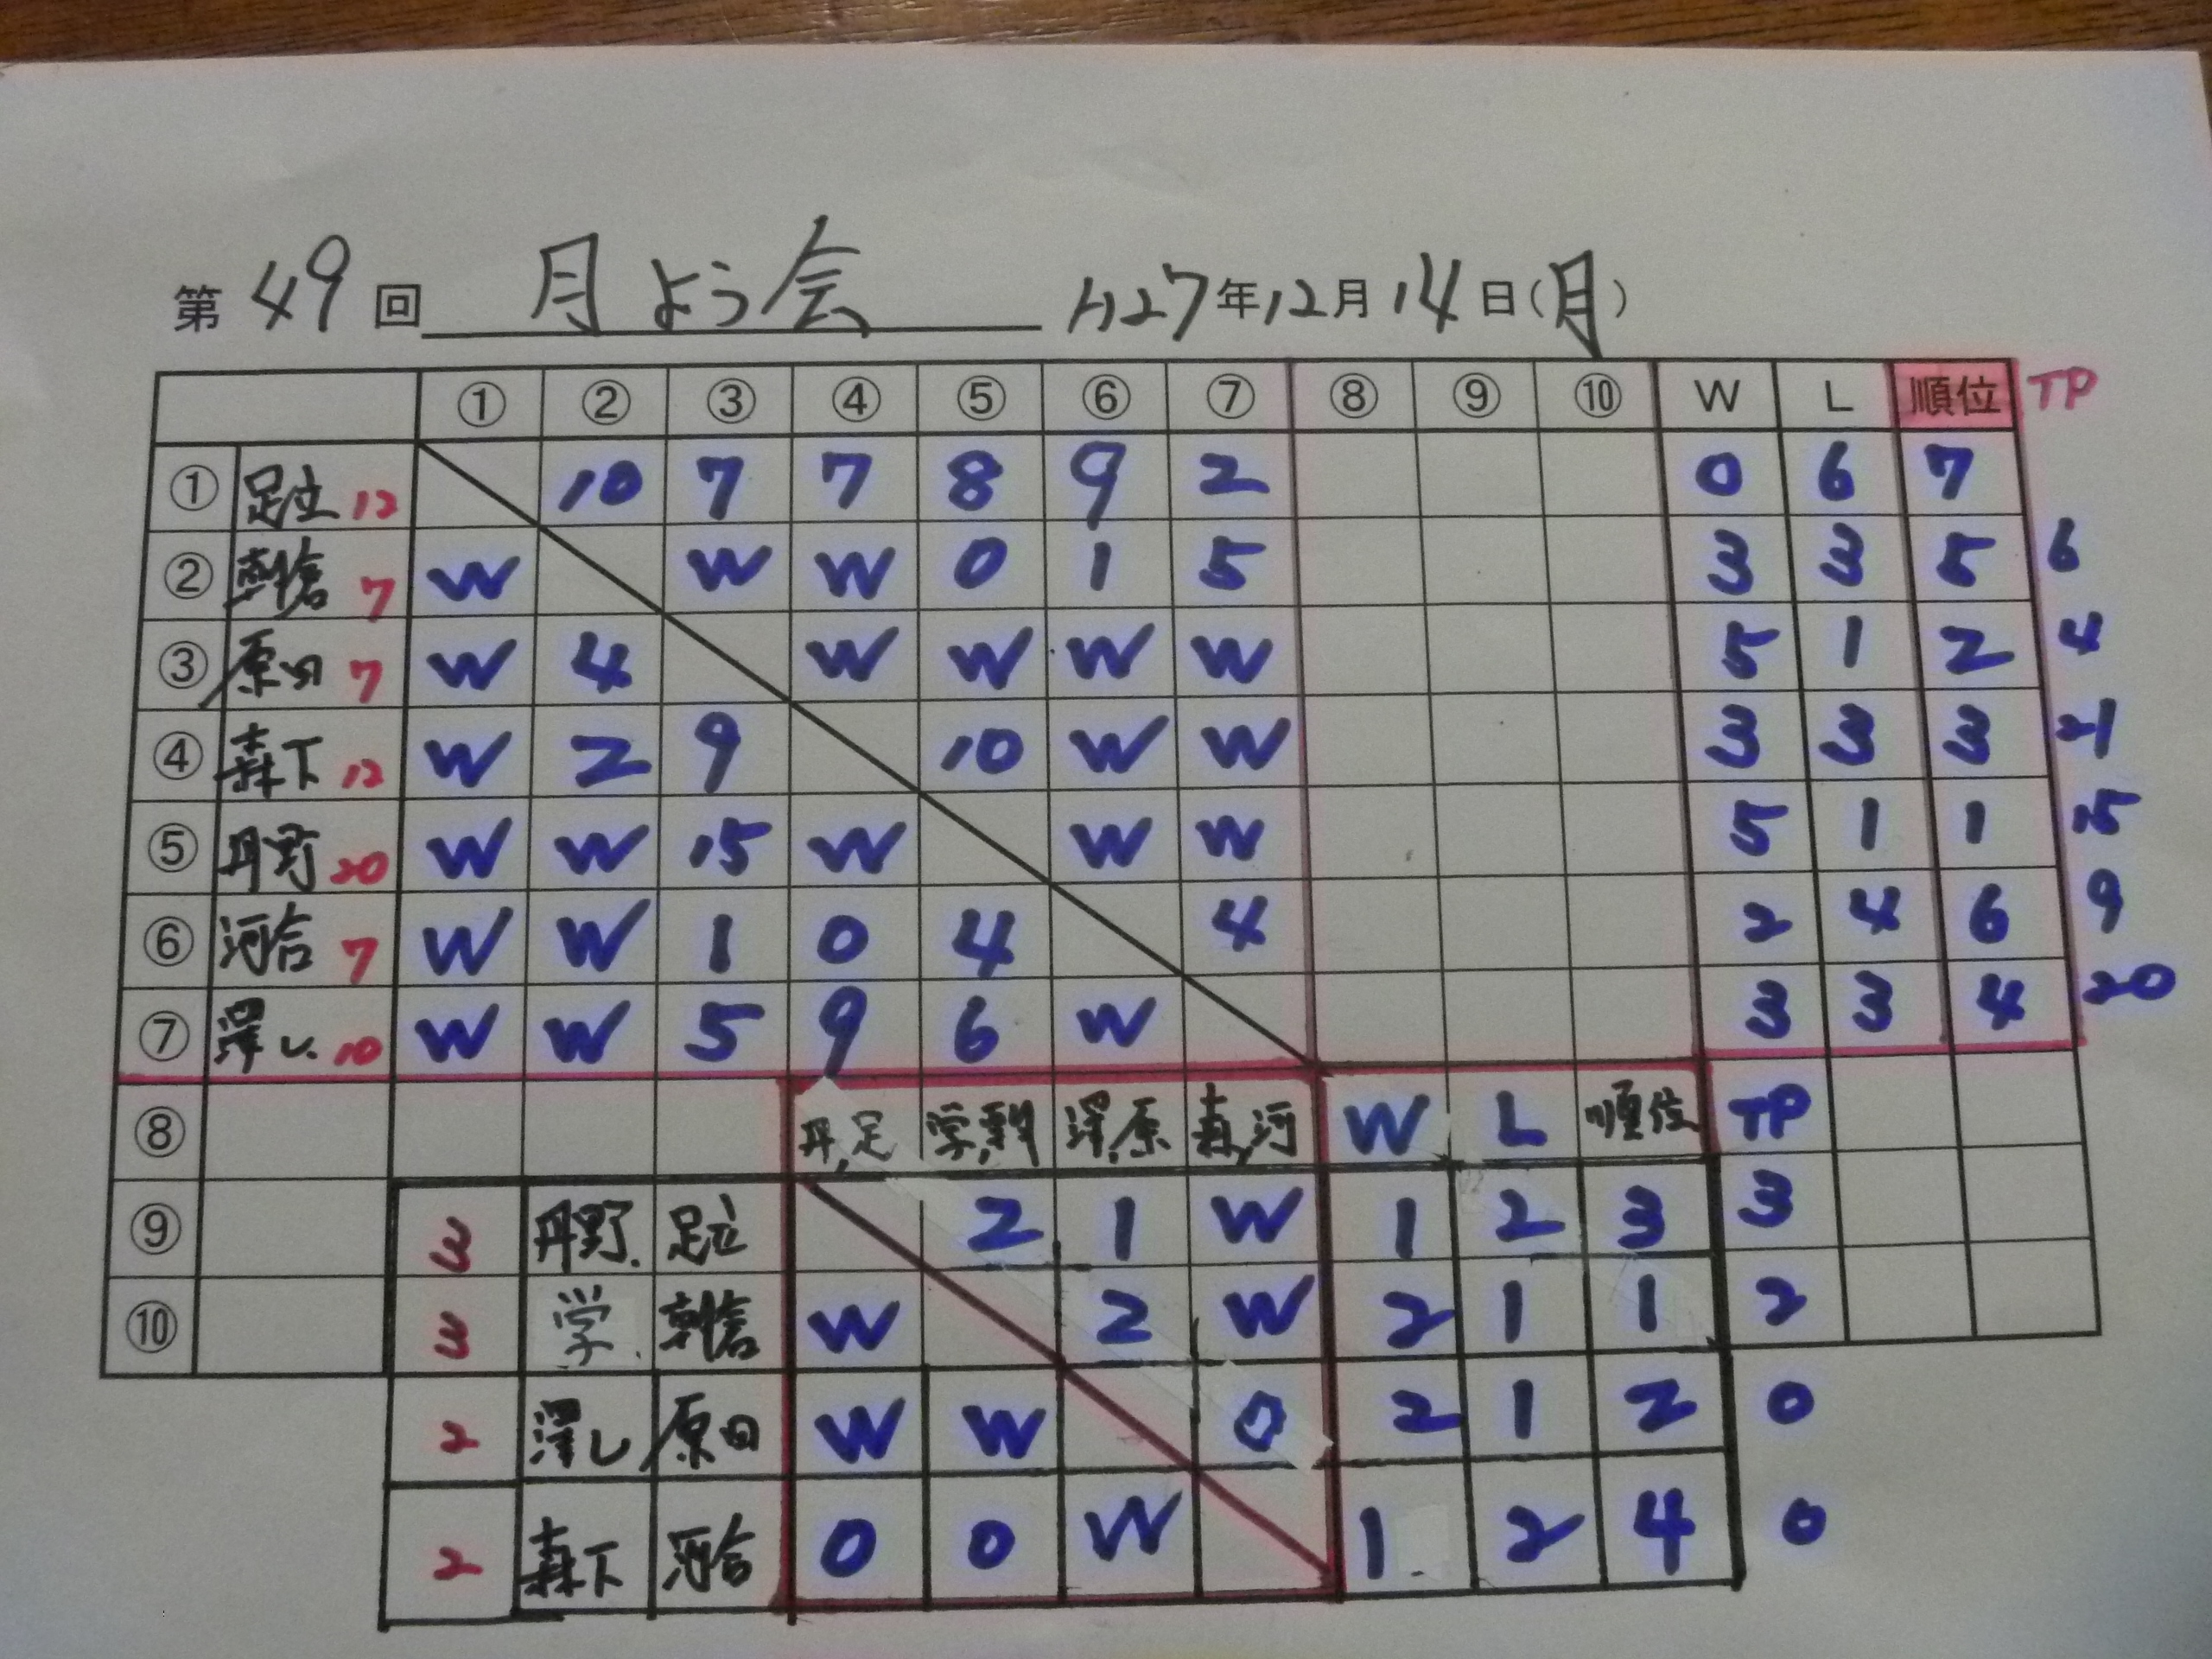 第49回 月よう会 H27年12月14日(月)
① ② ③ ④ ⑤ ⑥ ⑦ ⑧ ⑨ ⑩ W L 順位 TP
① 足立 12 10 7 7 8 9 2 0 6 7
② 朝倉 7 W W W 0 1 5 3 3 5 6
③ 原田 7 W 4 W W W W 5 1 2 4
④ 森下 12 W 2 9 10 W W 3 3 3 21
⑤ 丹野 20 W W 15 W W W 5 1 1 15
⑥ 河合 7 W W 1 0 4 4 2 4 6 9
⑦ 澤し 10 W W 5 9 6 W 3 3 4 20
⑧ 丹,足 学,朝 澤,原 森,河 W L 順位 TP
⑨ 3 丹野. 足立 2 1 W 1 2 3 3
⑩ 3 学. 朝倉 W 2 W 2 1 1 2
2 澤し 原田 W W 0 2 1 2 0
2 森下 河合 0 0 W 1 2 4 0